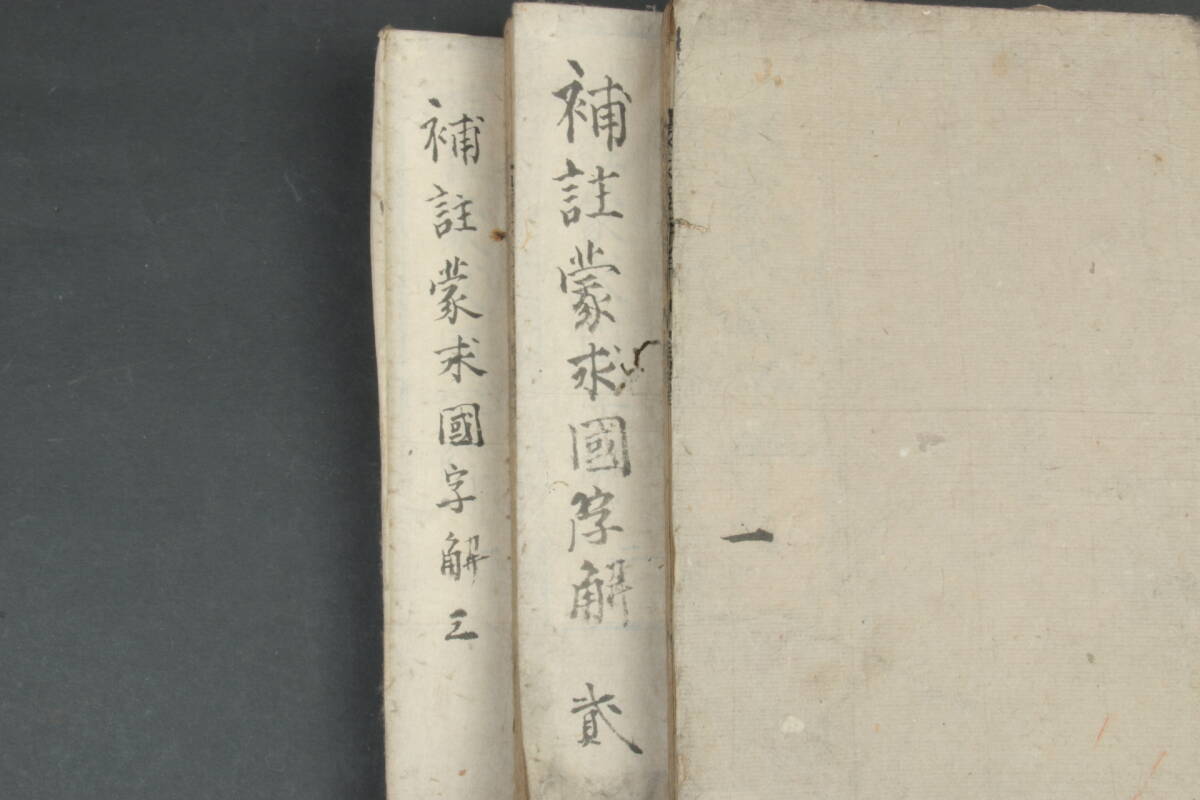 一
補註蒙求國字解 貳
補註蒙求國字解 三